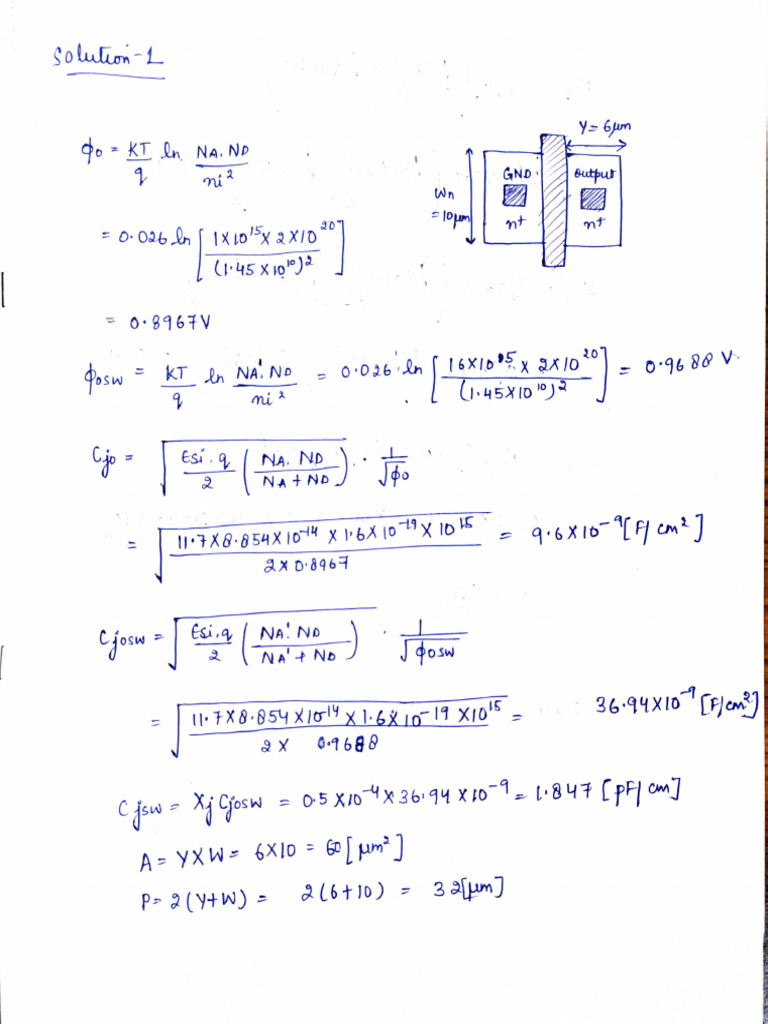 Solution-1
Y = 6μm
GND
output
Wn
= 10μm
n+
n+
ϕo = KT/q ln NA.ND/ni²
= 0.026 ln [1×10¹⁵×2×10²⁰/(1.45×10¹⁰)²]
= 0.8967V
ϕosw = KT/q ln NA'.ND/ni² = 0.026 ln [16×10¹⁵×2×10²⁰/(1.45×10¹⁰)²] = 0.9688 V
Cjo = √(Esi.q/2 (NA.ND/NA+ND)) . 1/√ϕo
= √(11.7×8.854×10⁻¹⁴×1.6×10⁻¹⁹×10¹⁵/2×0.8967) = 9.6×10⁻⁹ [F/cm²]
Cjosw = √(Esi.q/2 (NA'.ND/NA'+ND)) . 1/√ϕosw
= √(11.7×8.854×10⁻¹⁴×1.6×10⁻¹⁹×10¹⁵/2×0.9688) = 36.94×10⁻⁹ [F/cm²]
Cjsw = Xj Cjosw = 0.5×10⁻⁴×36.94×10⁻⁹ = 1.847 [pF/cm]
A = Y×W = 6×10 = 60 [μm²]
P= 2(Y+W) = 2(6+10) = 32[μm]